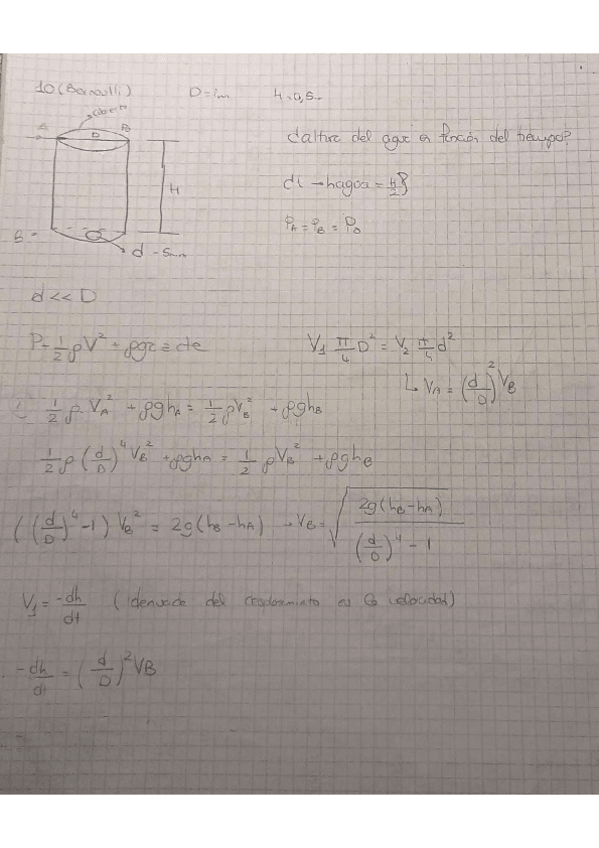 10 (Bernoulli) D=1m H.0,5m
abierto
A D B
¿altura del agua en función del tiempo?
H
dt → hagua = H/2?
P_A = P_B = P_0
B
d - 5mm
d << D
P + 1/2 ρV² + ρgz = cte V₁ π/4 D² = V₂ π/4 d²
↳ V_A = (d/D)² V_B
1/2 ρ V_A² + ρgh_A = 1/2 ρV_B² + ρgh_B
1/2 ρ (d/D)⁴ V_B² + ρgh_A = 1/2 ρV_B² + ρgh_B
((d/D)⁴ - 1) V_B² = 2g(h_B - h_A) → V_B = √(2g(h_B - h_A) / ((d/D)⁴ - 1))
V₁ = -dh/dt (derivada del desplazamiento es la velocidad)
-dh/dt = (d/D)² V_B